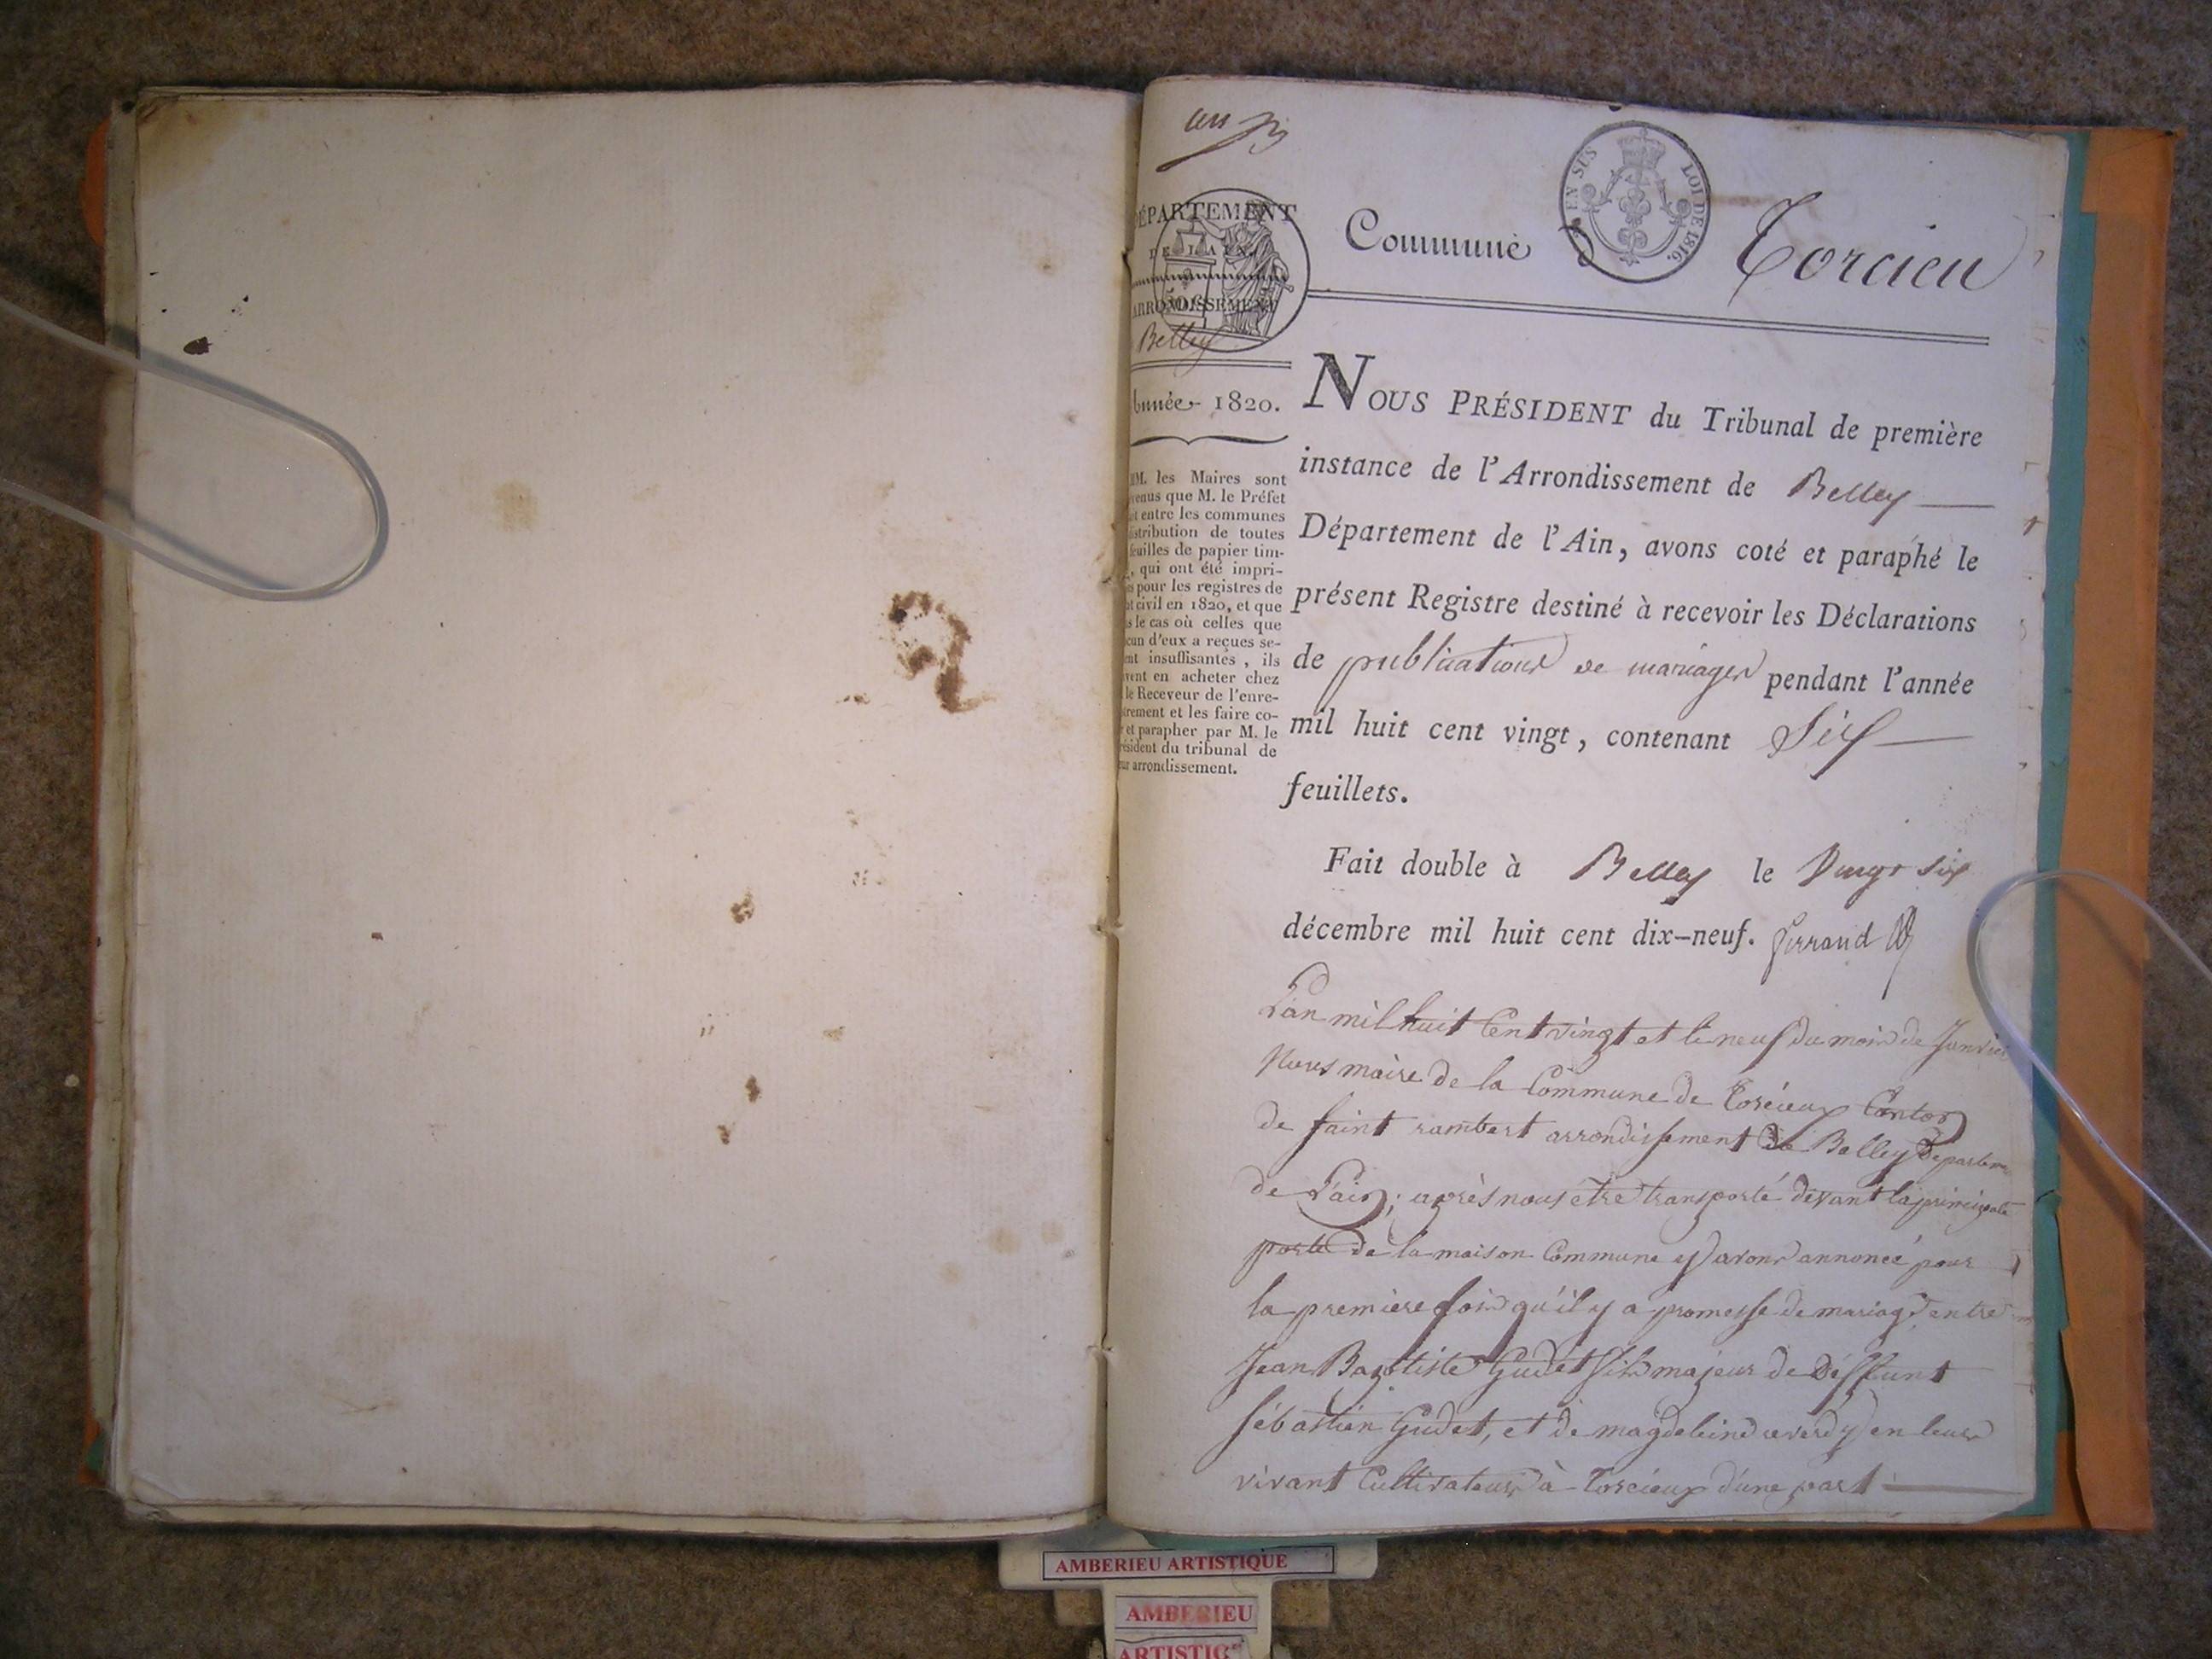 DÉPARTEMENT
DE L'AIN.
ARRONDISSEMENT
Belley
Année 1820.
MM. les Maires sont
venus que M. le Préfet
entre les communes
distribution de toutes
feuilles de papier tim-
, qui ont été impri-
pour les registres de
civil en 1820, et que
le cas où celles que
d'eux a reçues se-
insuffisantes, ils
en acheter chez
le Receveur de l'enre-
et les faire co-
et parapher par M. le
résident du tribunal de
arrondissement.
EN SUS LOI DE 1816.
Commune d Torcieu
NOUS PRÉSIDENT du Tribunal de première
instance de l'Arrondissement de Belley
Département de l'Ain, avons coté et paraphé le
présent Registre destiné à recevoir les Déclarations
de publications de mariages pendant l'année
mil huit cent vingt, contenant Six
feuillets.
Fait double à Belley le Vingt six
décembre mil huit cent dix-neuf. ferrand
L'an mil huit Cent vingt et le neuf du mois de Janvier
Nous maire de la Commune de Torcieux Canton
de saint rambert arrondissement de Belley departem
de L'ain; après nous être transporté devant la principale
porte de la maison Commune y avons annoncé pour
la premiere fois qu'il y a promesse de mariage entre
Jean Baptiste Gudet fils majeur de deffunt
sébastien Gudet, et de magdeleine en leurs
vivant Cultivateurs à Torcieux d'une part
AMBERIEU ARTISTIQUE
AMBERIEU
ARTISTIQ